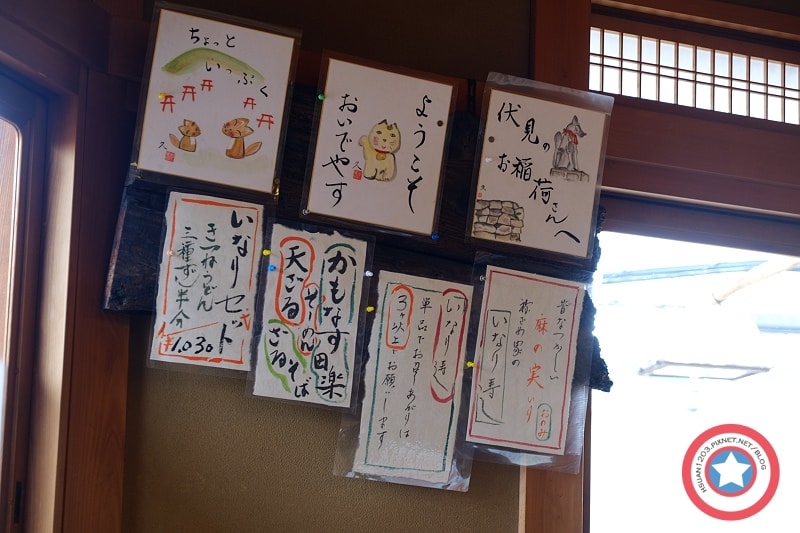 ちょっと
いっぷく
久
ようこそ
おいでやす
久
伏見の
お稲荷さんへ
久
いなりセット
きつねうどん
三種ずし半分
¥1,030
かもなす田楽
そのへん
天ざる
ざるそば
いなり寿し
単品でお召しあがりは
3ヶ以上でお願いします
昔なつかしい
麻の実入り
祢ざめ家の
いなり寿し
おのみ
HSUAN1203.PIXNET.NET/BLOG